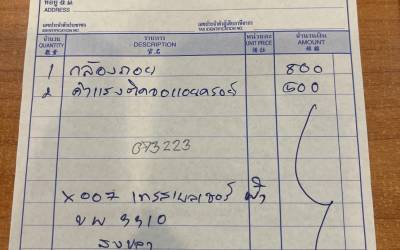 ที่อยู่ 住址
ADDRESS
เลขประจำตัวประชาชน
IDENTIFICATION NO.
เลขประจำตัวผู้เสียภาษีอากร
TAX IDENTIFICATION NO.
จำนวน รายการ หน่วยละ จำนวนเงิน
QUANTITY DESCRIPTION UNIT PRICE AMOUNT
數量 貨名 價估 銀額
1 กล้องถอย 800
2 ค่าแรงติดจอแอนดรอย 500
073223
X007 เทรลเบลเซอร์ ฟ้า
ขพ 3310
สงขลา